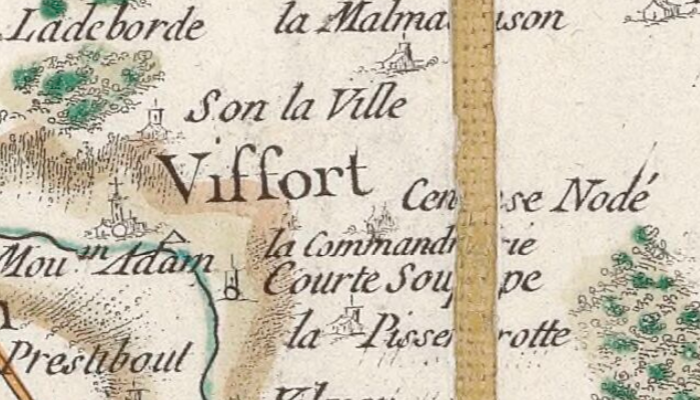 Ladeborde
la Malma son
Son la Ville
Viffort
Cen se Nodé
la Command rie
Mou.in Adam
Courte Soup pe
la Pisse rotte
Prestiboul